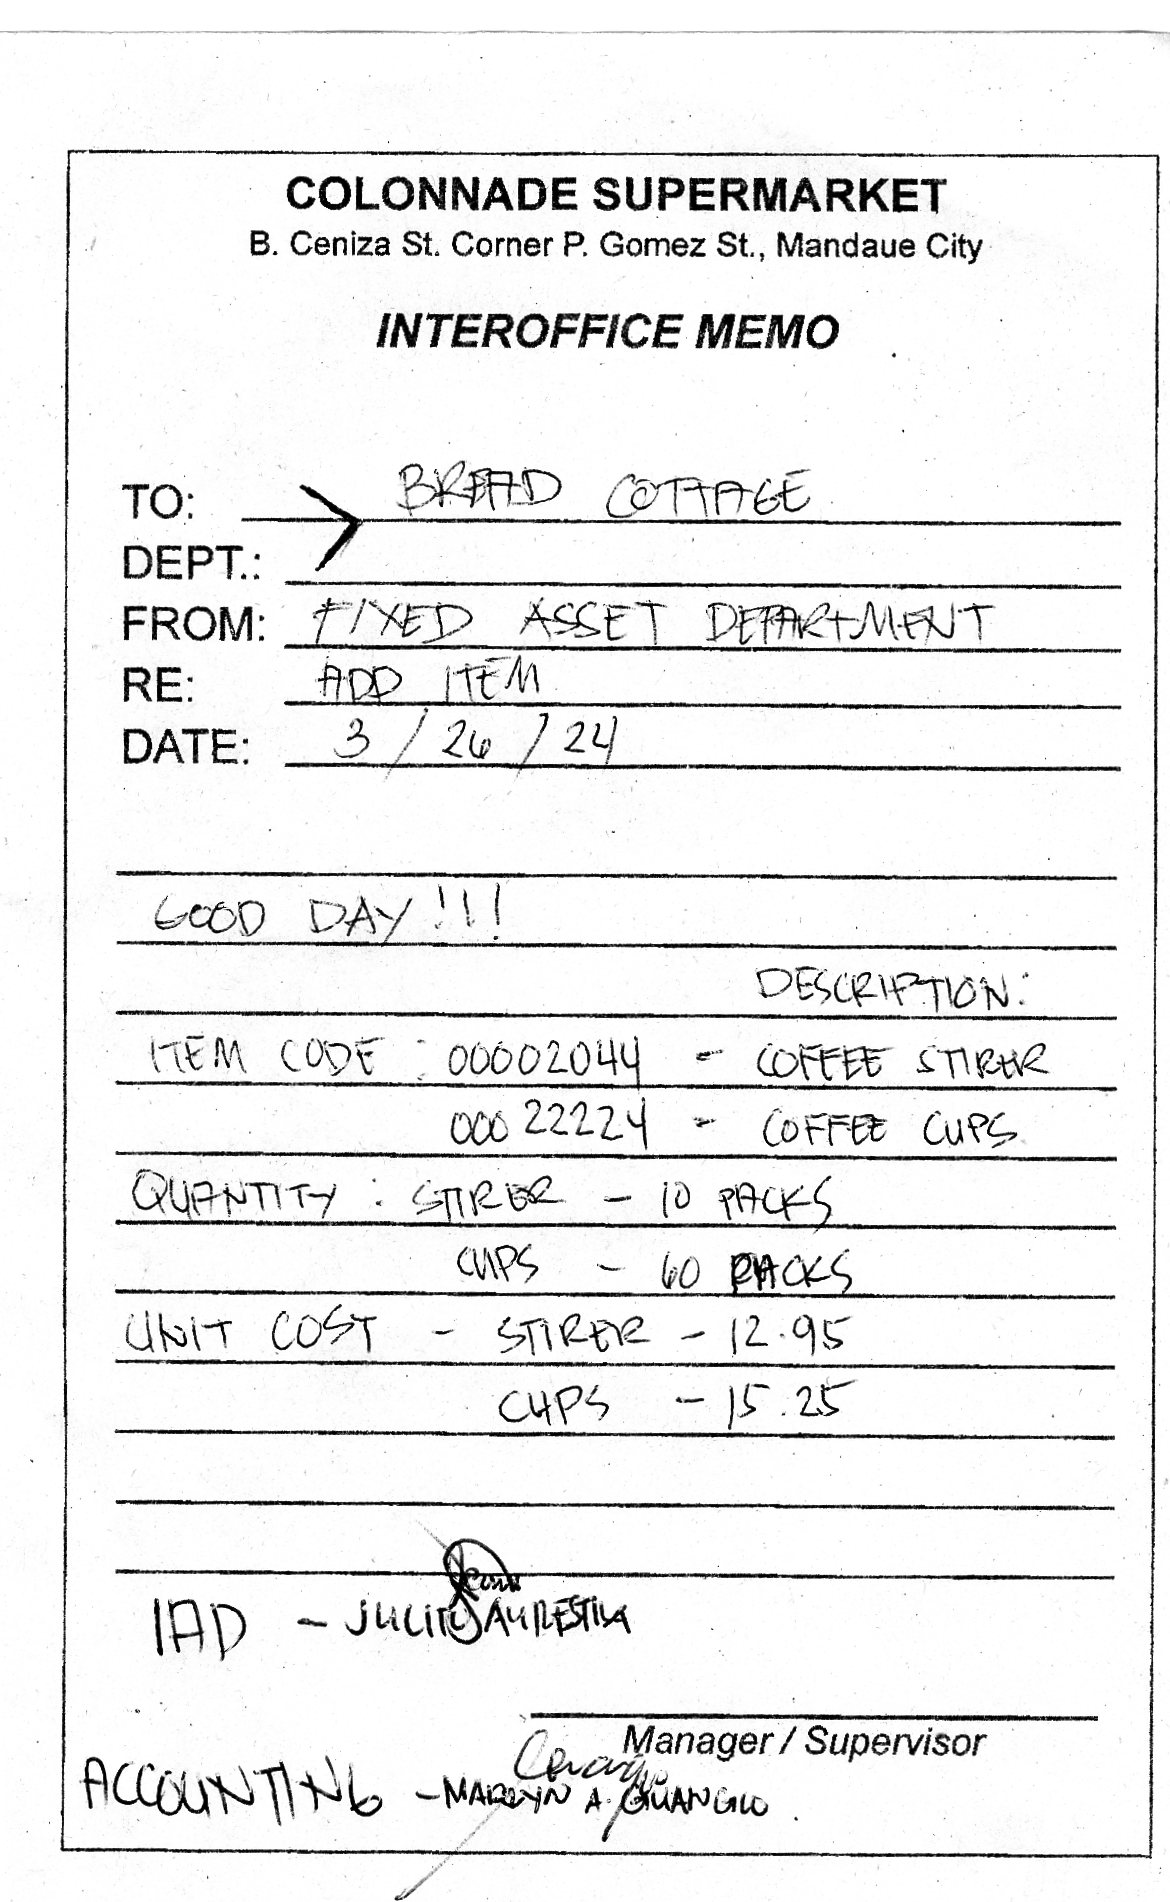 COLONNADE SUPERMARKET
B. Ceniza St. Corner P. Gomez St., Mandaue City
INTEROFFICE MEMO
TO: BREAD COTTAGE
DEPT.:
FROM: FIXED ASSET DEPARTMENT
RE: ADD ITEM
DATE: 3 / 26 / 24
GOOD DAY !!!
DESCRIPTION:
ITEM CODE : 00002044 - COFFEE STIRER
00022224 - COFFEE CUPS
QUANTITY : STIRER - 10 PACKS
CUPS - 60 PACKS
UNIT COST - STIRER - 12.95
CUPS - 15.25
IAD - JULITO
Manager / Supervisor
ACCOUNTING - MARLYN A.